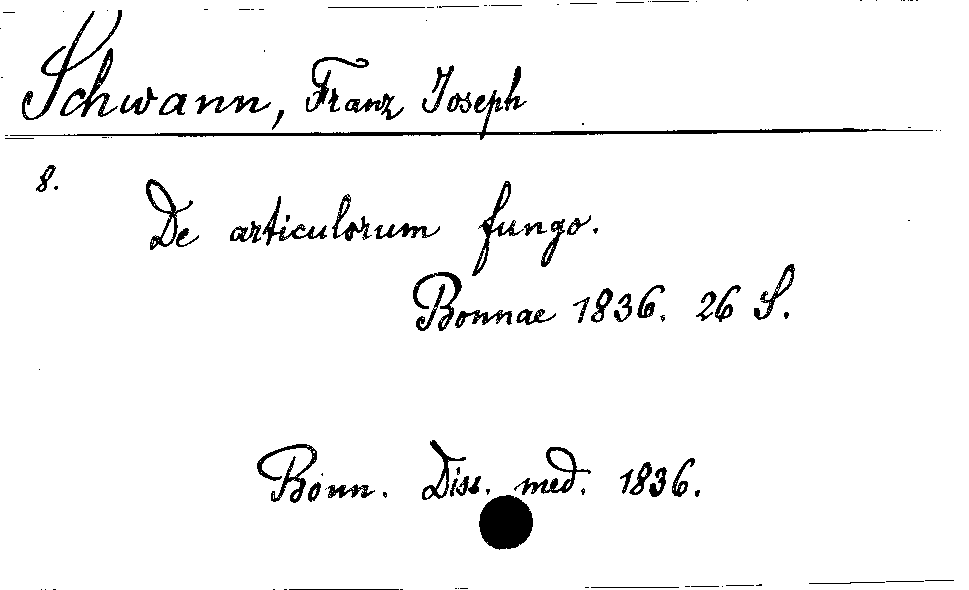 Schwann, Franz Joseph
8.
De articulorum fungo.
Bonnae 1836. 26 S.
Bonn. Diss. med. 1836.